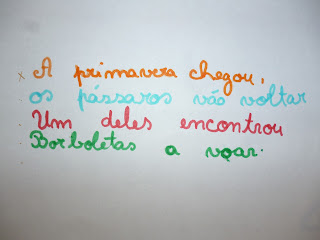 x A primavera chegou,
os pássaros vão voltar
Um deles encontrou
Borboletas a voar.